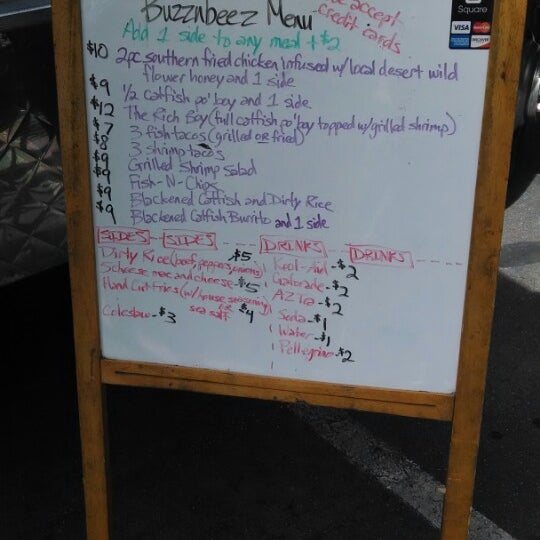 we accept
credit cards
Square
VISA
Buzznbeez Menu
Add 1 side to any meal + $2
$10 2pc southern fried chicken infused w/ local desert wild
flower honey and 1 side
$9 1/2 catfish po' boy and 1 side
$12 The Rich Boy (full catfish po' boy topped w/ grilled shrimp)
$7 3 fish tacos (grilled OR fried)
$8 3 shrimp tacos
$9 Grilled Shrimp Salad
$9 Fish-N-Chips
$9 Blackened Catfish and Dirty Rice
$9 Blackened Catfish Burrito and 1 side
SIDES SIDES DRINKS DRINKS
Dirty Rice (beef, peppers, onions) $5
5 cheese mac and cheese - $5
Hand Cut fries (w/ house seasoning
sea salt $4
Coleslaw - $3
Kool-Aid - $2
Gatorade - $2
AZ Tea - $2
Soda - $1
Water - $1
Pellegrino - $2